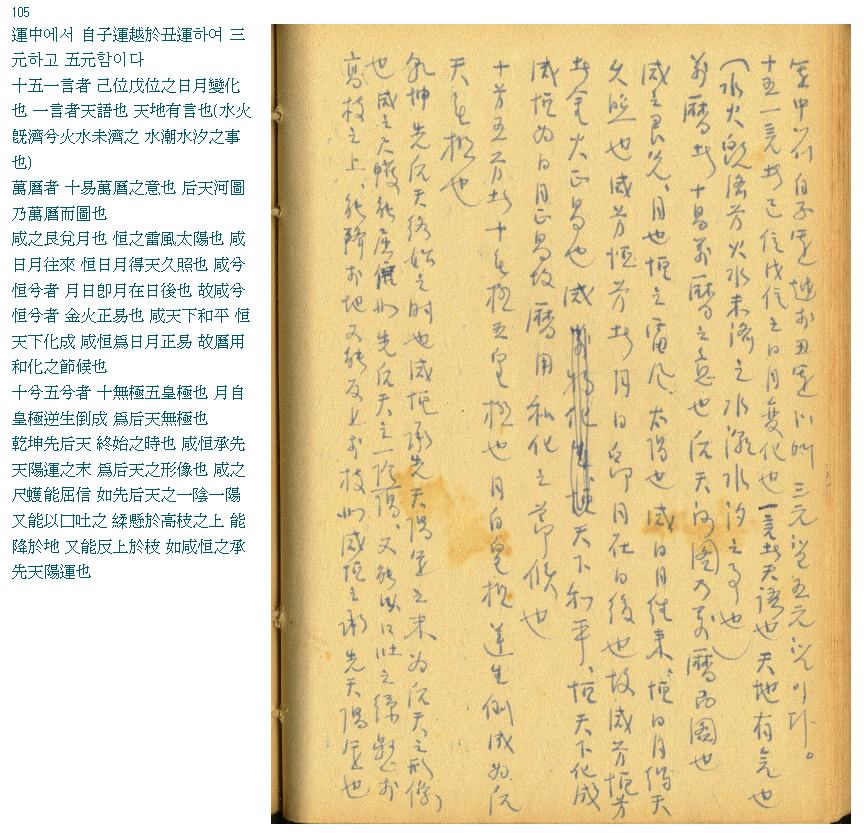 105
運中에서 自子運越於丑運하여 三
元하고 五元함이다
十五一言者 己位戊位之日月變化
也 一言者天語也 天地有言也(水火
旣濟兮火水未濟之 水潮水汐之事
也)
萬曆者 十易萬曆之意也 后天河圖
乃萬曆而圖也
咸之艮兌月也 恒之雷風太陽也 咸
日月往來 恒日月得天久照也 咸兮
恒兮者 月日卽月在日後也 故咸兮
恒兮者 金火正易也 咸天下和平 恒
天下化成 咸恒爲日月正易 故曆用
和化之節候也
十兮五兮者 十無極五皇極也 月自
皇極逆生倒成 爲后天無極也
乾坤先后天 終始之時也 咸恒承先
天陽運之末 爲后天之形像也 咸之
尺蠖能屈信 如先后天之一陰一陽
又能以口吐之 懸於高枝之上 能
降於地 又能反上於枝 如咸恒之承
先天陽運也
運中에서 自子運越於丑運하여 三元하고 五元함이다。
十五一言者 己位戊位之日月變化也 一言者天語也 天地有言也
(水火旣濟兮火水未濟之 水潮水汐之事也)
萬曆者 十易萬曆之意也 后天河圖乃萬曆而圖也
咸之艮兌、月也 恒之雷風、太陽也 咸日月往來、恒日月得天
久照也 咸兮恒兮者 月日卽月在日後也 故咸兮恒兮
者金火正易也 咸天下和平、恒天下化成
咸恒爲日月正易故曆用和化之節候也
十兮五兮者 十無極五皇極也 月自皇極逆生倒成爲后
天無極也
乾坤先后天終始之時也 咸恒承先天陽運之末 爲后天之形像
也 咸之尺蠖能屈 如先后天之一陰一陽、又能以口吐之 懸於
高枝之上、能降於地 又能反上於枝 如咸恒之承先天陽運也